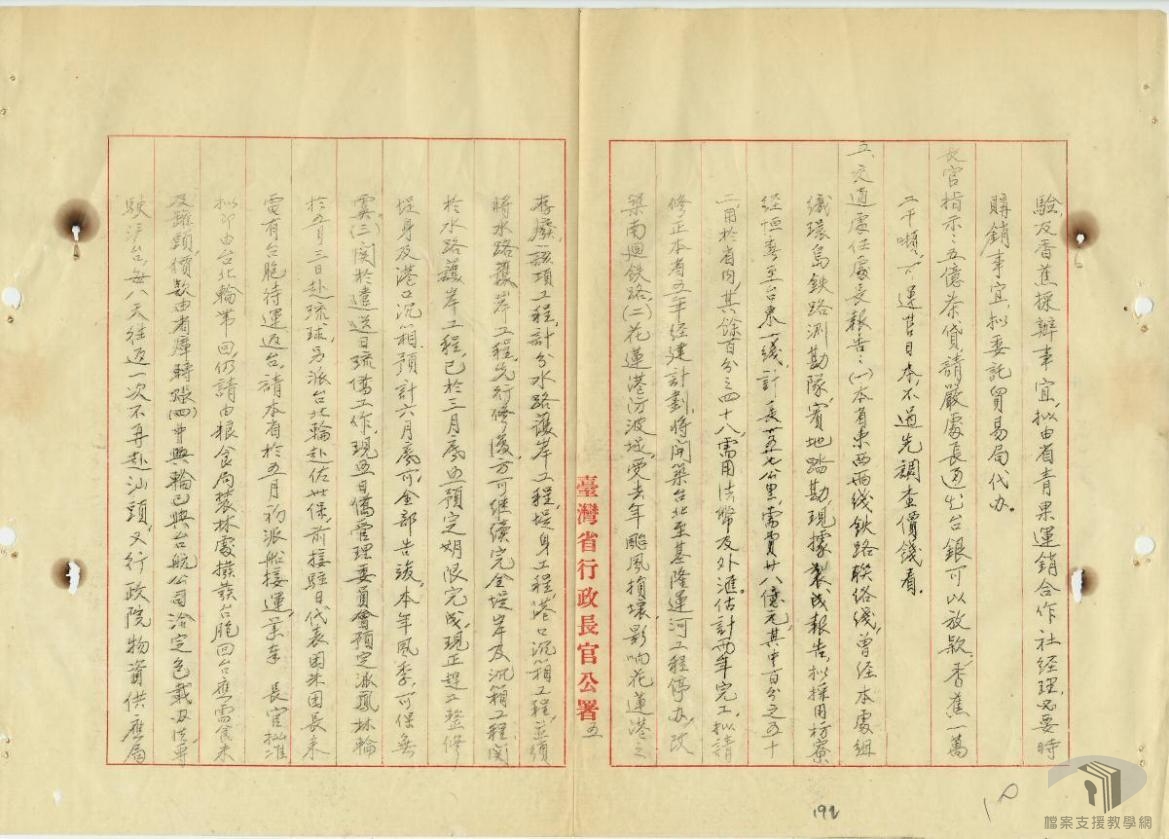 驗及香蕉採辦事宜,拟由省青果運销合作社經理,必要時
購銷事宜,拟委託貿易局代办。
長官指示:五億茶貸請嚴處長通知台銀可以放款,香蕉一萬
二千噸,可運省日本,不過先調查價錢看。
五、交通處任處長報告:(一)本省東西兩线鉄路联络线,曾经本處組
織環島鉄路測勘隊,實地踏勘,現據製成報告,拟採用枋寮
经恒春至台東一线,計長一五七公里,需費廿八億元,其中百分之五十
二用於省内,其餘百分之四十八,需用法幣及外滙估計兩年完工,拟請
修正本省五年经建計劃,將開築台北至基隆運河工程停办,改
築南迴鉄路,(二)花蓮港防波堤,受去年颱風損壞,影响花蓮港之
存廢,該項工程,計分水路護岸工程,堤身工程,港口沉箱工程,並須
將水路護岸工程,先行修復,方可继續完全堤岸及沉箱工程,関
於水路護岸工程,已於三月底照預定期限完成,現正趕工整修
堤身及港口沉箱,預計六月底可全部告竣,本年風季,可保無
虞,(三)関於遣送日琉僑工作,現照日僑管理委員會預定派鳳林輪
於五月三日赴琉球,另派台北輪赴佐世保,前接駐日代表团朱团長来
電有台胞待運返台,請本省於五月初派船接運,業奉 長官批准
拟即由台北輪帶回,仍請由粮食局農林處撥發台胞回台應需食米
及蹤蹟,價款由省庫轉賬,(四)中興輪已與台航公司洽定包載及法專
駛滬台,每八天往返一次不再赴汕頭,又行政院物資供應局
臺灣省行政長官公署
五
192
檔案支援教學網